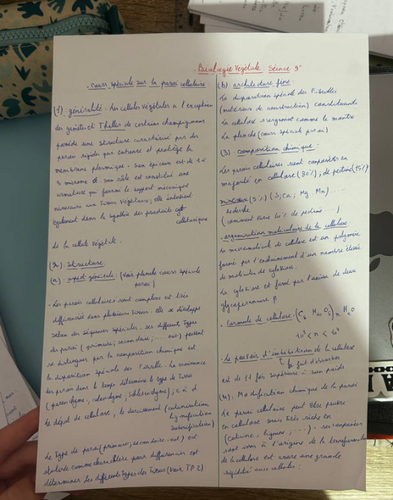 Biologie Végétale Séance 3
cours spéciale sur la paroi cellulaire
(1) généralité : Les cellules végétales à l'exception
des gamètes et Thalles de certain champignons
possède une structure caractérisé par des
parois rigide qui entoure et protège la
membrane plasmique. Son épaisseur est de
microns et son rôle est considéré une
qui fourni le support mécanique
nécessaire aux tissus végétales, elle intervient
également dans la synthèse des produits
de la cellule végétale.
(2) Structure
(a) aspect générale : (Voir planche cours spéciale
paroi)
. Les parois cellulaires sont complexe et très
différencié dans plusieurs tissus. elle se développe
selon des séquences spéciales. ses différents Types
des parois (primaires, secondaire, ... ect) peuvent
se distinguer par la composition chimique et
la disposition spéciale des fibrilles. La croissance
des parois dans le temps détermine le type de Tissu
(parenchyme, collenchyme, sclérenchyme), c à d
le dépôt de cellulose, le
Le Type de paroi (primaire, secondaire ect) est
considérée comme un critère pour différencier et
déterminer les différents types des tissus (Voir TP 2)
(b) architecture fine :
La disposition spéciale des fibrilles
(matériaux de construction) constituant de
cellulose s'organisent comme le montre
La planche (cours spéciale paroi)
(3) composition chimique :
Les parois cellulaires sont composées en
majorité en cellulose (80%), de pectine
(5%) (Si, Ca, Mg, Mn) ...
. organisation moléculaire de la cellulose
La macromolécule de cellulose est un polymère
formé par l'enchainement d'un nombre élevé
de molécules de cellobiose.
Le cellobiose est formé par l'union de deux
glycopyrannose β
. Formule de cellulose : (C6 H10 O5)n H2O
. Le pouvoir d'imbibition de la cellulose
est de fois supérieure à son poids
(4) Modification chimique de la paroi
La paroi cellulaire peut être
en cellulose mais très riche en
(cutine, lignine, ...). ses composés
sont à l'origine de la transformation
de la cellulose et assure une grande
rigidité aux cellules.